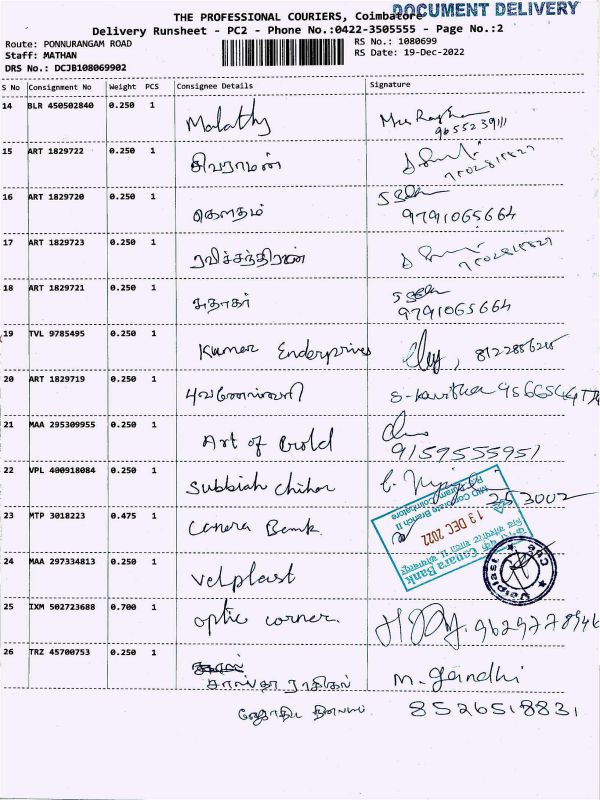 DOCUMENT DELIVERY
THE PROFESSIONAL COURIERS, Coimbatore
Delivery Runsheet - PC2 - Phone No.:0422-3505555 - Page No.:2
Route: PONNURANGAM ROAD
RS No.: 1080699
Staff: MATHAN
RS Date: 19-Dec-2022
DRS No.: DCJB108069902
S No Consignment No Weight PCS Consignee Details Signature
14 BLR 450502840 0.250 1 Malathy
9655239111
15 ART 1829722 0.250 1 சிவராமன்
16 ART 1829720 0.250 1 கௌதம்
9791065664
17 ART 1829723 0.250 1 ரவிச்சந்திரன்
18 ART 1829721 0.250 1 சுதாகர்
9791065664
19 TVL 9785495 0.250 1 Kumar Enderprives
20 ART 1829719 0.250 1 புவனேஸ்வரி
21 MAA 295309955 0.250 1 Art of Gold
9159555951
22 VPL 400918084 0.250 1 Subbiah
253002
23 MTP 3018223 0.475 1 Canera Bank
Canara Bank
13 DEC 2022
24 MAA 297334813 0.250 1 Velplast
Velplast
25 IXM 502723688 0.700 1 optic corner.
26 TRZ 45700753 0.250 1
M. Gandhi
8526518831